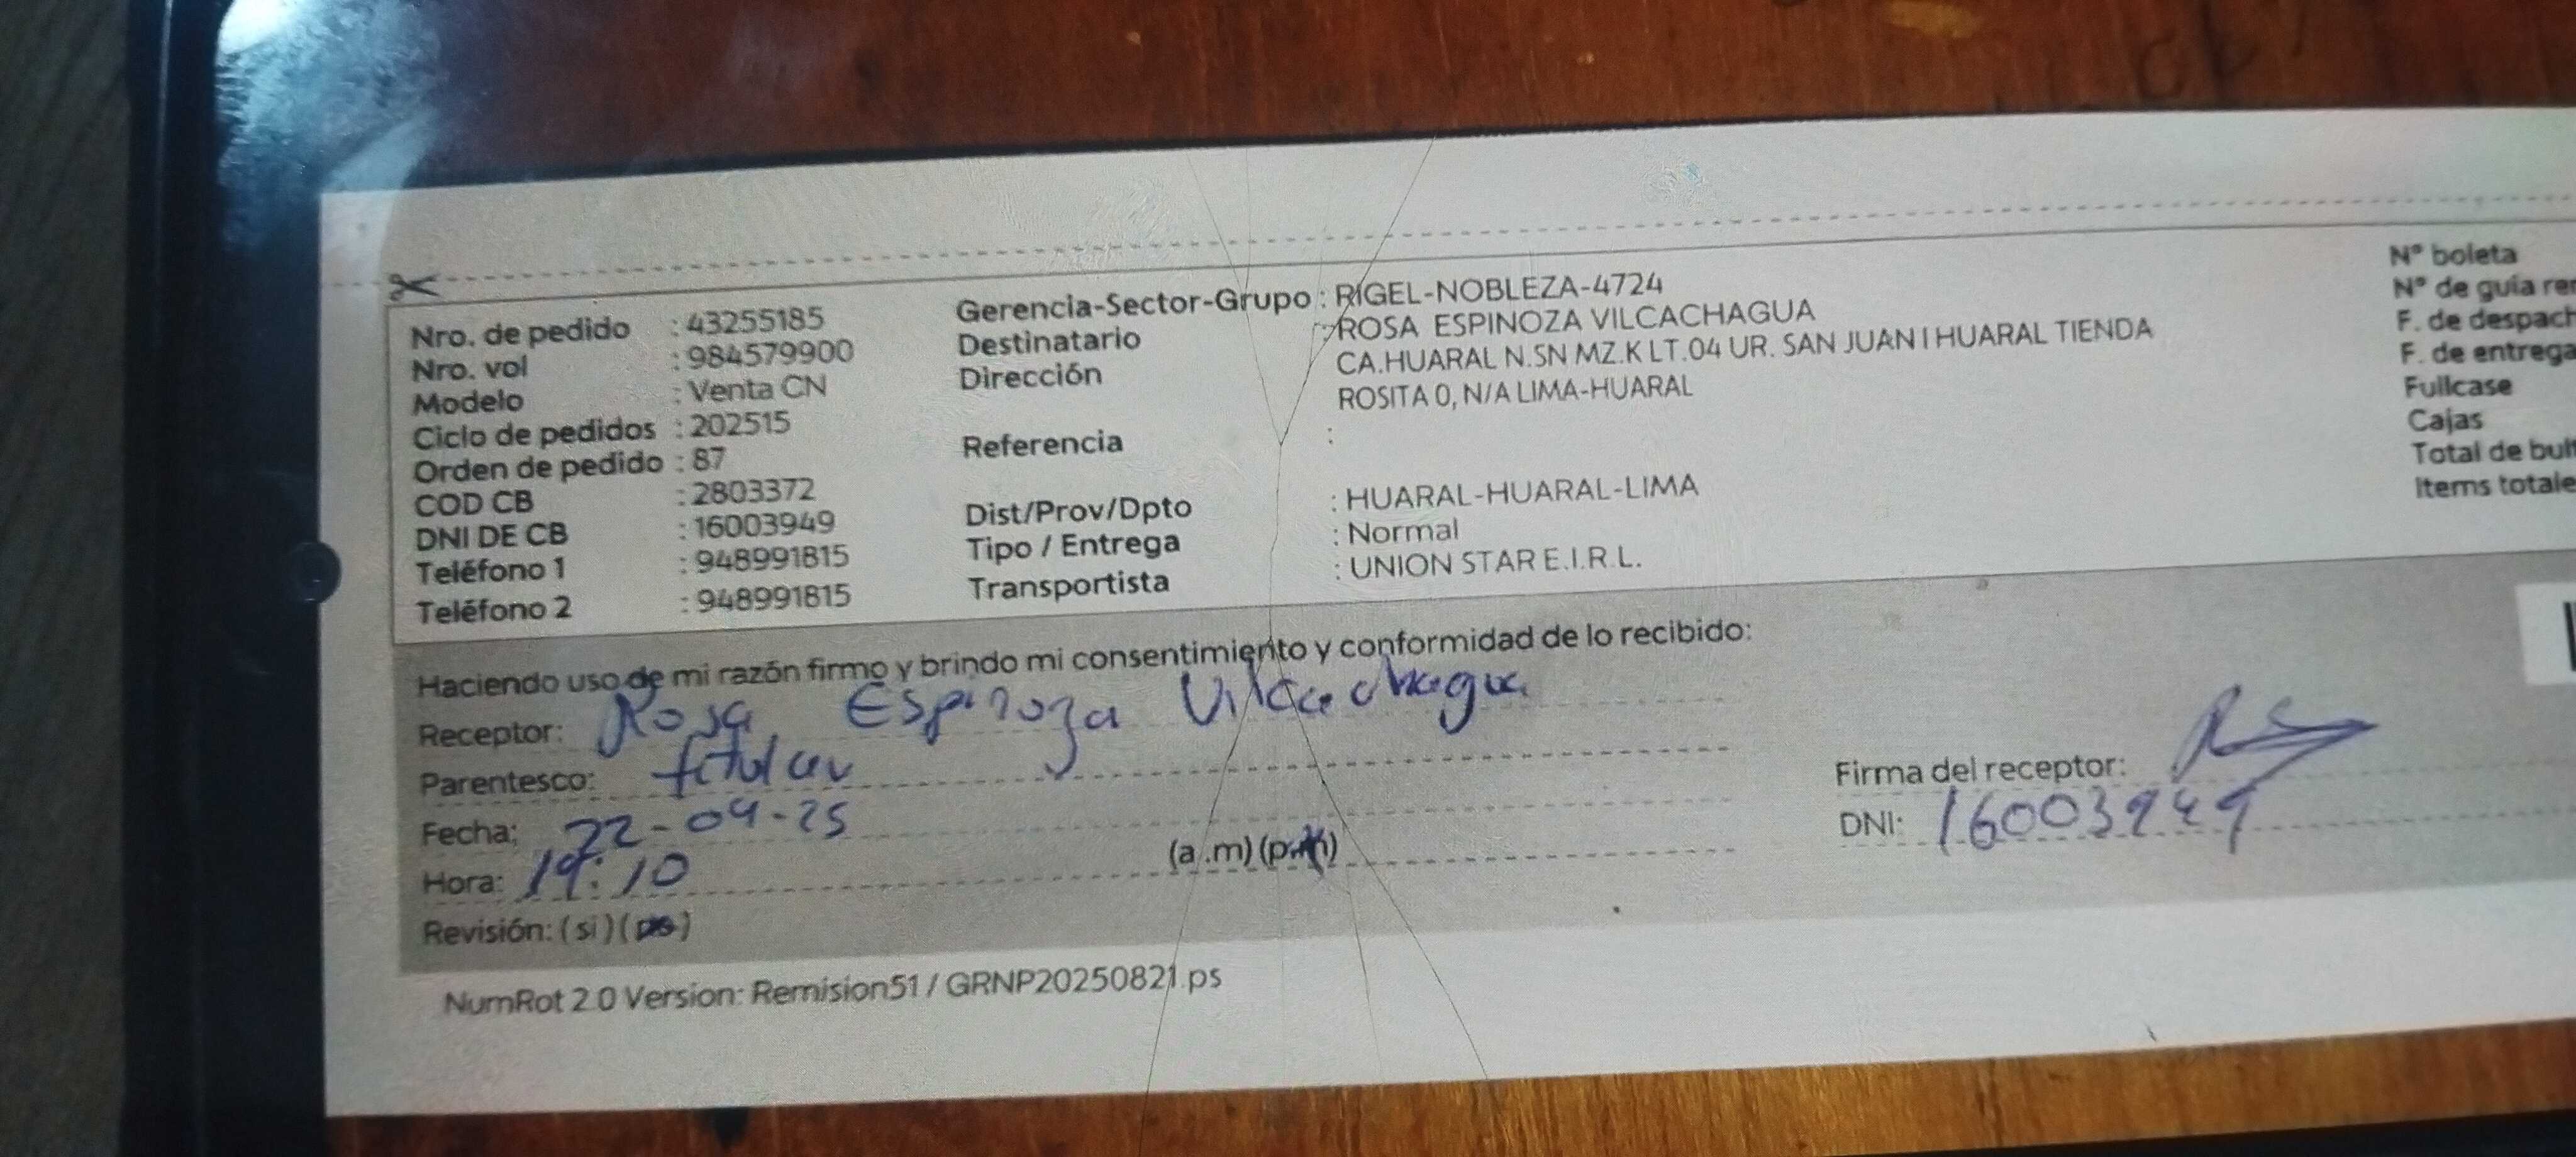 Nro. de pedido : 43255185
Nro. vol : 984579900
Modelo : Venta CN
Ciclo de pedidos : 202515
Orden de pedido : 87
COD CB : 2803372
DNI DE CB : 16003949
Teléfono 1 : 948991815
Teléfono 2 : 948991815
Gerencia-Sector-Grupo : RIGEL-NOBLEZA-4724
Destinatario : ROSA ESPINOZA VILCACHAGUA
Dirección CA.HUARAL N.SN MZ.K LT.04 UR. SAN JUAN I HUARAL TIENDA
ROSITA 0, N/A LIMA-HUARAL
Referencia :
Dist/Prov/Dpto : HUARAL-HUARAL-LIMA
Tipo / Entrega : Normal
Transportista : UNION STAR E.I.R.L.
N° boleta
N° de guía
F. de
F. de entrega
Fullcase
Cajas
Total de
Items
Haciendo uso de mi razón firmo y brindo mi consentimiento y conformidad de lo recibido:
Receptor: Rosa Espinoza Vilcachagua
Parentesco: titular
Fecha: 22-09-25
Hora: 19:10 (a.m) (p.m)
Revisión: (si) (no)
Firma del receptor:
DNI: 16003949
NumRot 2.0 Version: Remision51 / GRNP20250821.ps